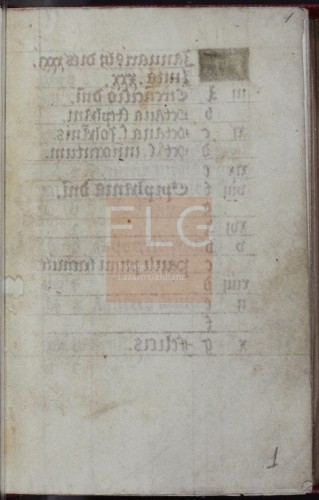 1
Januari9 dies xxxi
Luna xxx.
iii A Circuncisio dni.
b octava stephani.
xi c octava s iohanis.
d oct. s innocentum.
xix e
viii f Epiphania dni.
g
xvi
v b
FLG
c pauli primi
xiii d
ii e
f
x g felicis.
1